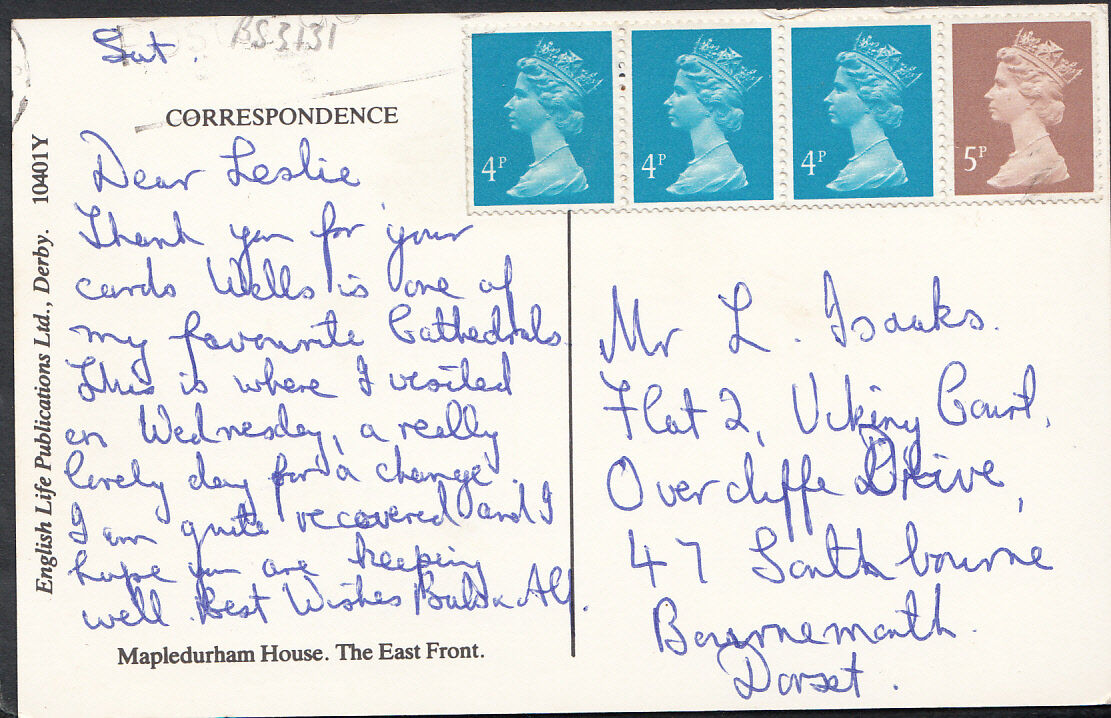 Sat.
BS3131
CORRESPONDENCE
Dear Leslie
Thank you for your
cards Wells is one of
my favourite Cathedrals
This is where I visited
on Wednesday, a really
lovely day for a change.
I am quite recovered and I
hope you are keeping
well. Best Wishes
Mapledurham House. The East Front.
English Life Publications Ltd., Derby. 10401Y
4P
4P
4P
5P
Mr L. Isaaks.
Flat 2, Viking Court,
Overcliffe Drive,
47 Southbourne
Bournemouth.
Dorset.